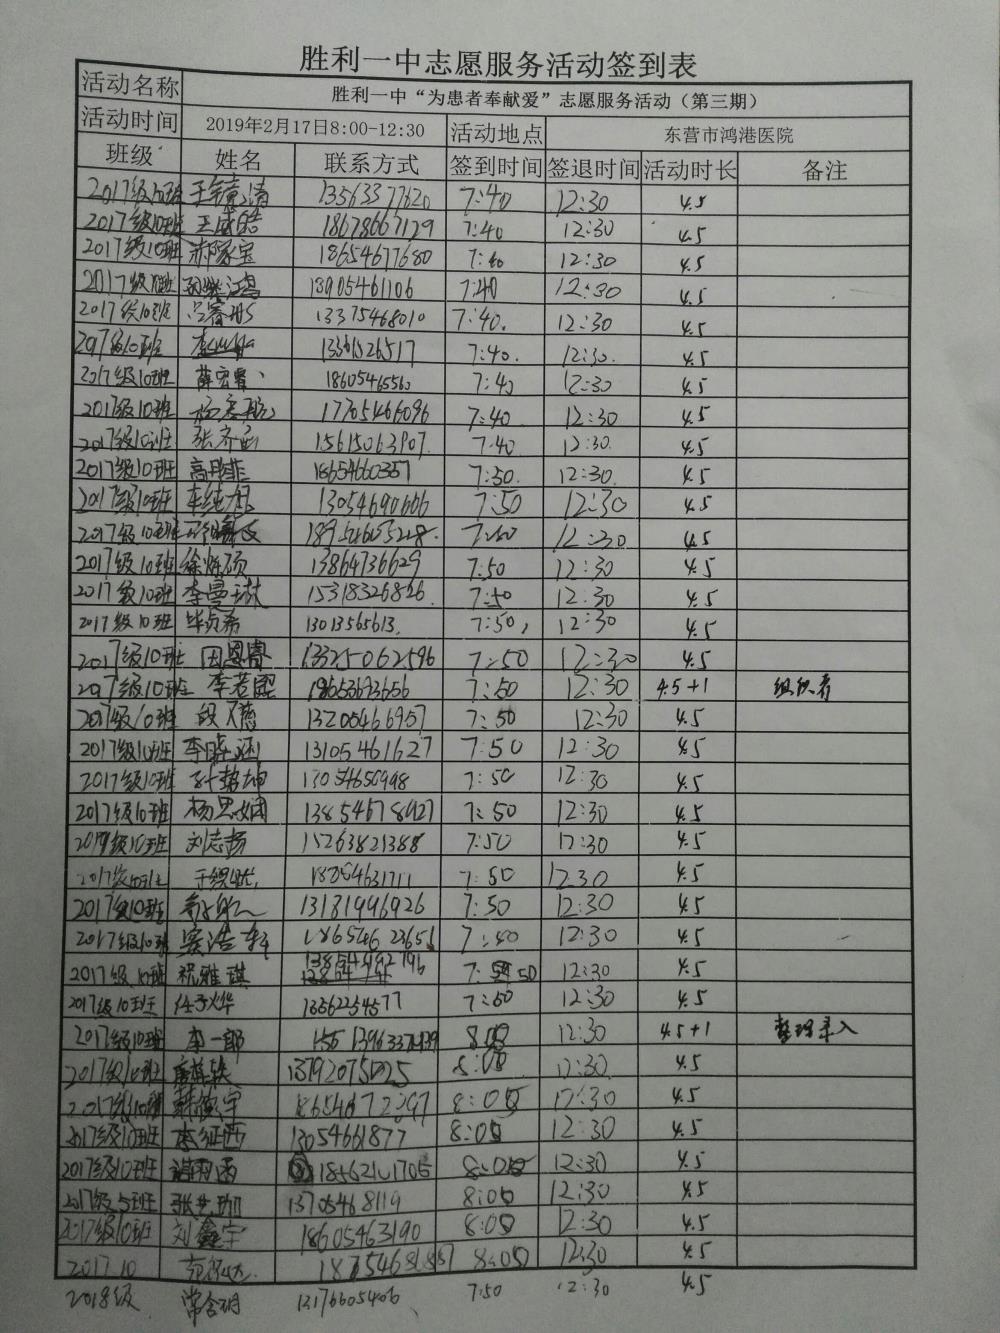 胜利一中志愿服务活动签到表
活动名称 胜利一中“为患者奉献爱”志愿服务活动（第三期）
活动时间 2019年2月17日8:00-12:30 活动地点 东营市鸿港医院
班级 姓名 联系方式 签到时间 签退时间 活动时长 备注
13563377620 7:40 12:30 4.5
2017级10班 王盛皓 18678667129 7:40 12:30 4.5
2017级10班 郝家宝 18654677680 7:40 12:30 4.5
13905461106 7:40 12:30 4.5
2017级10班 吕睿彤 13375468010 7:40. 12:30 4.5
2017级10班 13361526517 7:40. 12:30. 4.5
2017级10班 薛宏 18605465560 7:40 12:30 4.5
2017级10班 杨 17705466096 7:40 12:30 4.5
2017级10班 张齐 15615063907. 7:40 12:30. 4.5
2017级10班 高雅菲 18654660357 7:50. 12:30. 4.5
2017级10班 13054690606 7:50 12:30 4.5
2017级10班 18954605228. 7:50 12:30 4.5
2017级10班 徐烁硕 13864736629 7:50 12:30 4.5
2017级10班 李曼琳 15318326826. 7:50 12:30 4.5
2017级10班 毕贞希 13013565613. 7:50, 12:30 4.5
2017级10班 田恩睿 13325062596 7:50 12:30 4.5
2017级10班 李若熙 18653673656 7:50 12:30 4.5+1 组织者
2017级10班 段 13205466957 7:50 12:30 4.5
2017级10班 李晓涵 13105461627 7:50 12:30 4.5
2017级10班 13054650998 7:50 12:30 4.5
2017级10班 杨思娴 13854678927 7:50 12:30 4.5
2017级10班 刘志扬 15263821388 7:50 12:30 4.5
2017级10班 于 7:50 12:30 4.5
2017级10班 13181996926 7:50 12:30 4.5
2017级10班 窦浩轩 18654623651 7:40 12:30 4.5
2017级10班 祝雅琪 13854992796 7:50 12:30 4.5
2017级10班 任予烨 13562254577 7:50 12:30 4.5
2017级10班 李一郎 13963374939 8:00 12:30 4.5+1 整理录入
2017级10班 13792075025 8:00 12:30 4.5
2017级10班 韩德宇 18654672297 8:05 12:30 4.5
2017级10班 李征西 13054661877 8:05 12:30 4.5
2017级10班 18562101705 8:05 12:30 4.5
2017级5班 张艺珈 13705468119 8:05 12:30 4.5
2017级10班 刘鑫宇 18605463190 8:05 12:30 4.5
2017.10 8:05 12:30 4.5
2018级 常含玥 13176605406 7:50 12:30 4.5